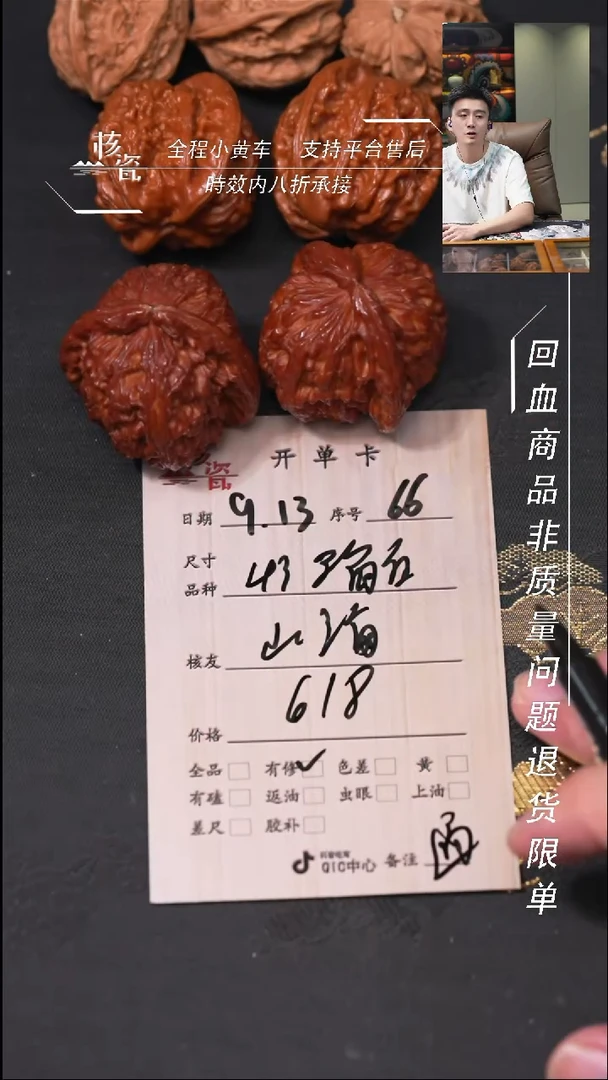 核瓷
全程小黄车 支持平台售后
時效内八折承接
回血商品非质量问题退货限单
瓷
开单卡
日期 9.13 序号 66
尺寸
品种 43
核友 山海
价格 618
全品 有修 ✓ 色差 黄
有磕 返油 虫眼 上油
差尺 胶补
QIC中心 备注